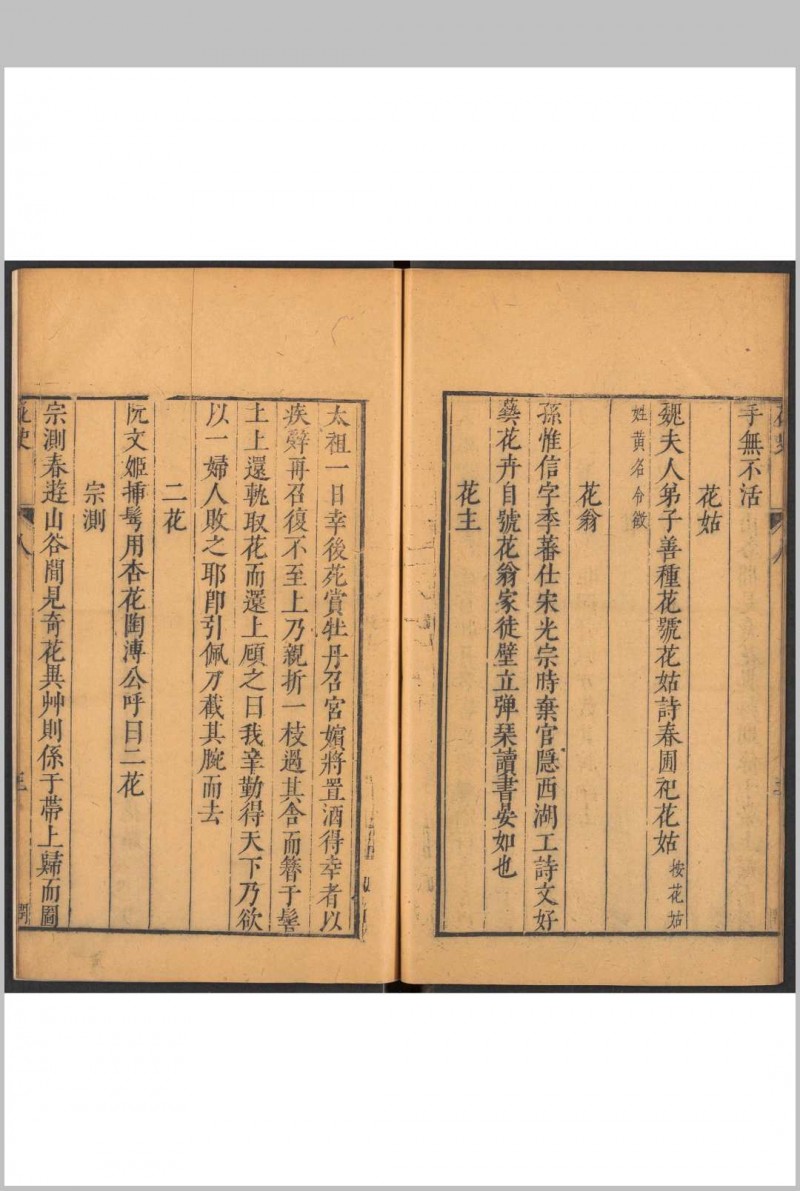 手無不活
花姑
魏夫人弟子善種花號花姑詩春圃祀花姑按花姑
姓黄名令徵
花翁
孫惟信字季蕃仕宋光宗時棄官隱西湖工詩文好
藝花卉自號花翁家徒壁立彈琹讀書晏如也
花主
太祖一日幸後苑賞牡丹召宮嬪將置酒得幸者以
疾辭再召復不至上乃親折一枝過其舍而簪于髻
士上還輒取花而還上頋之曰我辛勤得天下乃欲
以一婦人敗之耶卽引佩刀截其腕而去
二花
阮文姬揷髩用杏花陶溥公呼曰二花
宗測
宗測春遊山谷間見奇花異艸則係于帶上歸而圖
史
八